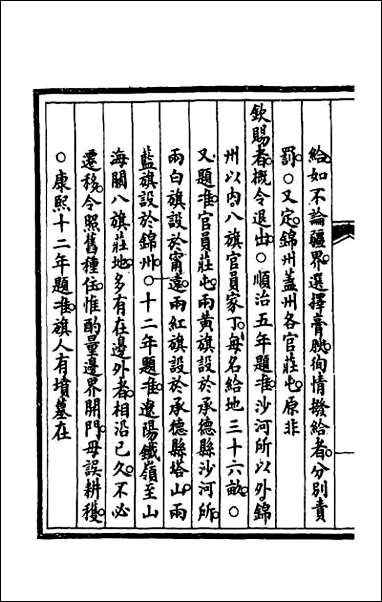 給如不論疆界選擇膏腴徇情撥給者分別責
罰○又定錦州蓋州各官莊屯原非
欽賜者概令退出○順治五年題准沙河所以外錦
州以內八旗官員家丁每名給地三十六畝○
又題准官員莊屯兩黃旗設於承德縣沙河所
兩白旗設於寧遠兩紅旗設於承德縣塔山兩
藍旗設於錦州○十二年題准遼陽鐵嶺至山
海關八旗莊地多有在邊外者相沿已久不必
遷移令照舊種住惟酌量邊界開門毋誤耕穫
○康熙十二年題准旗人有墳墓在